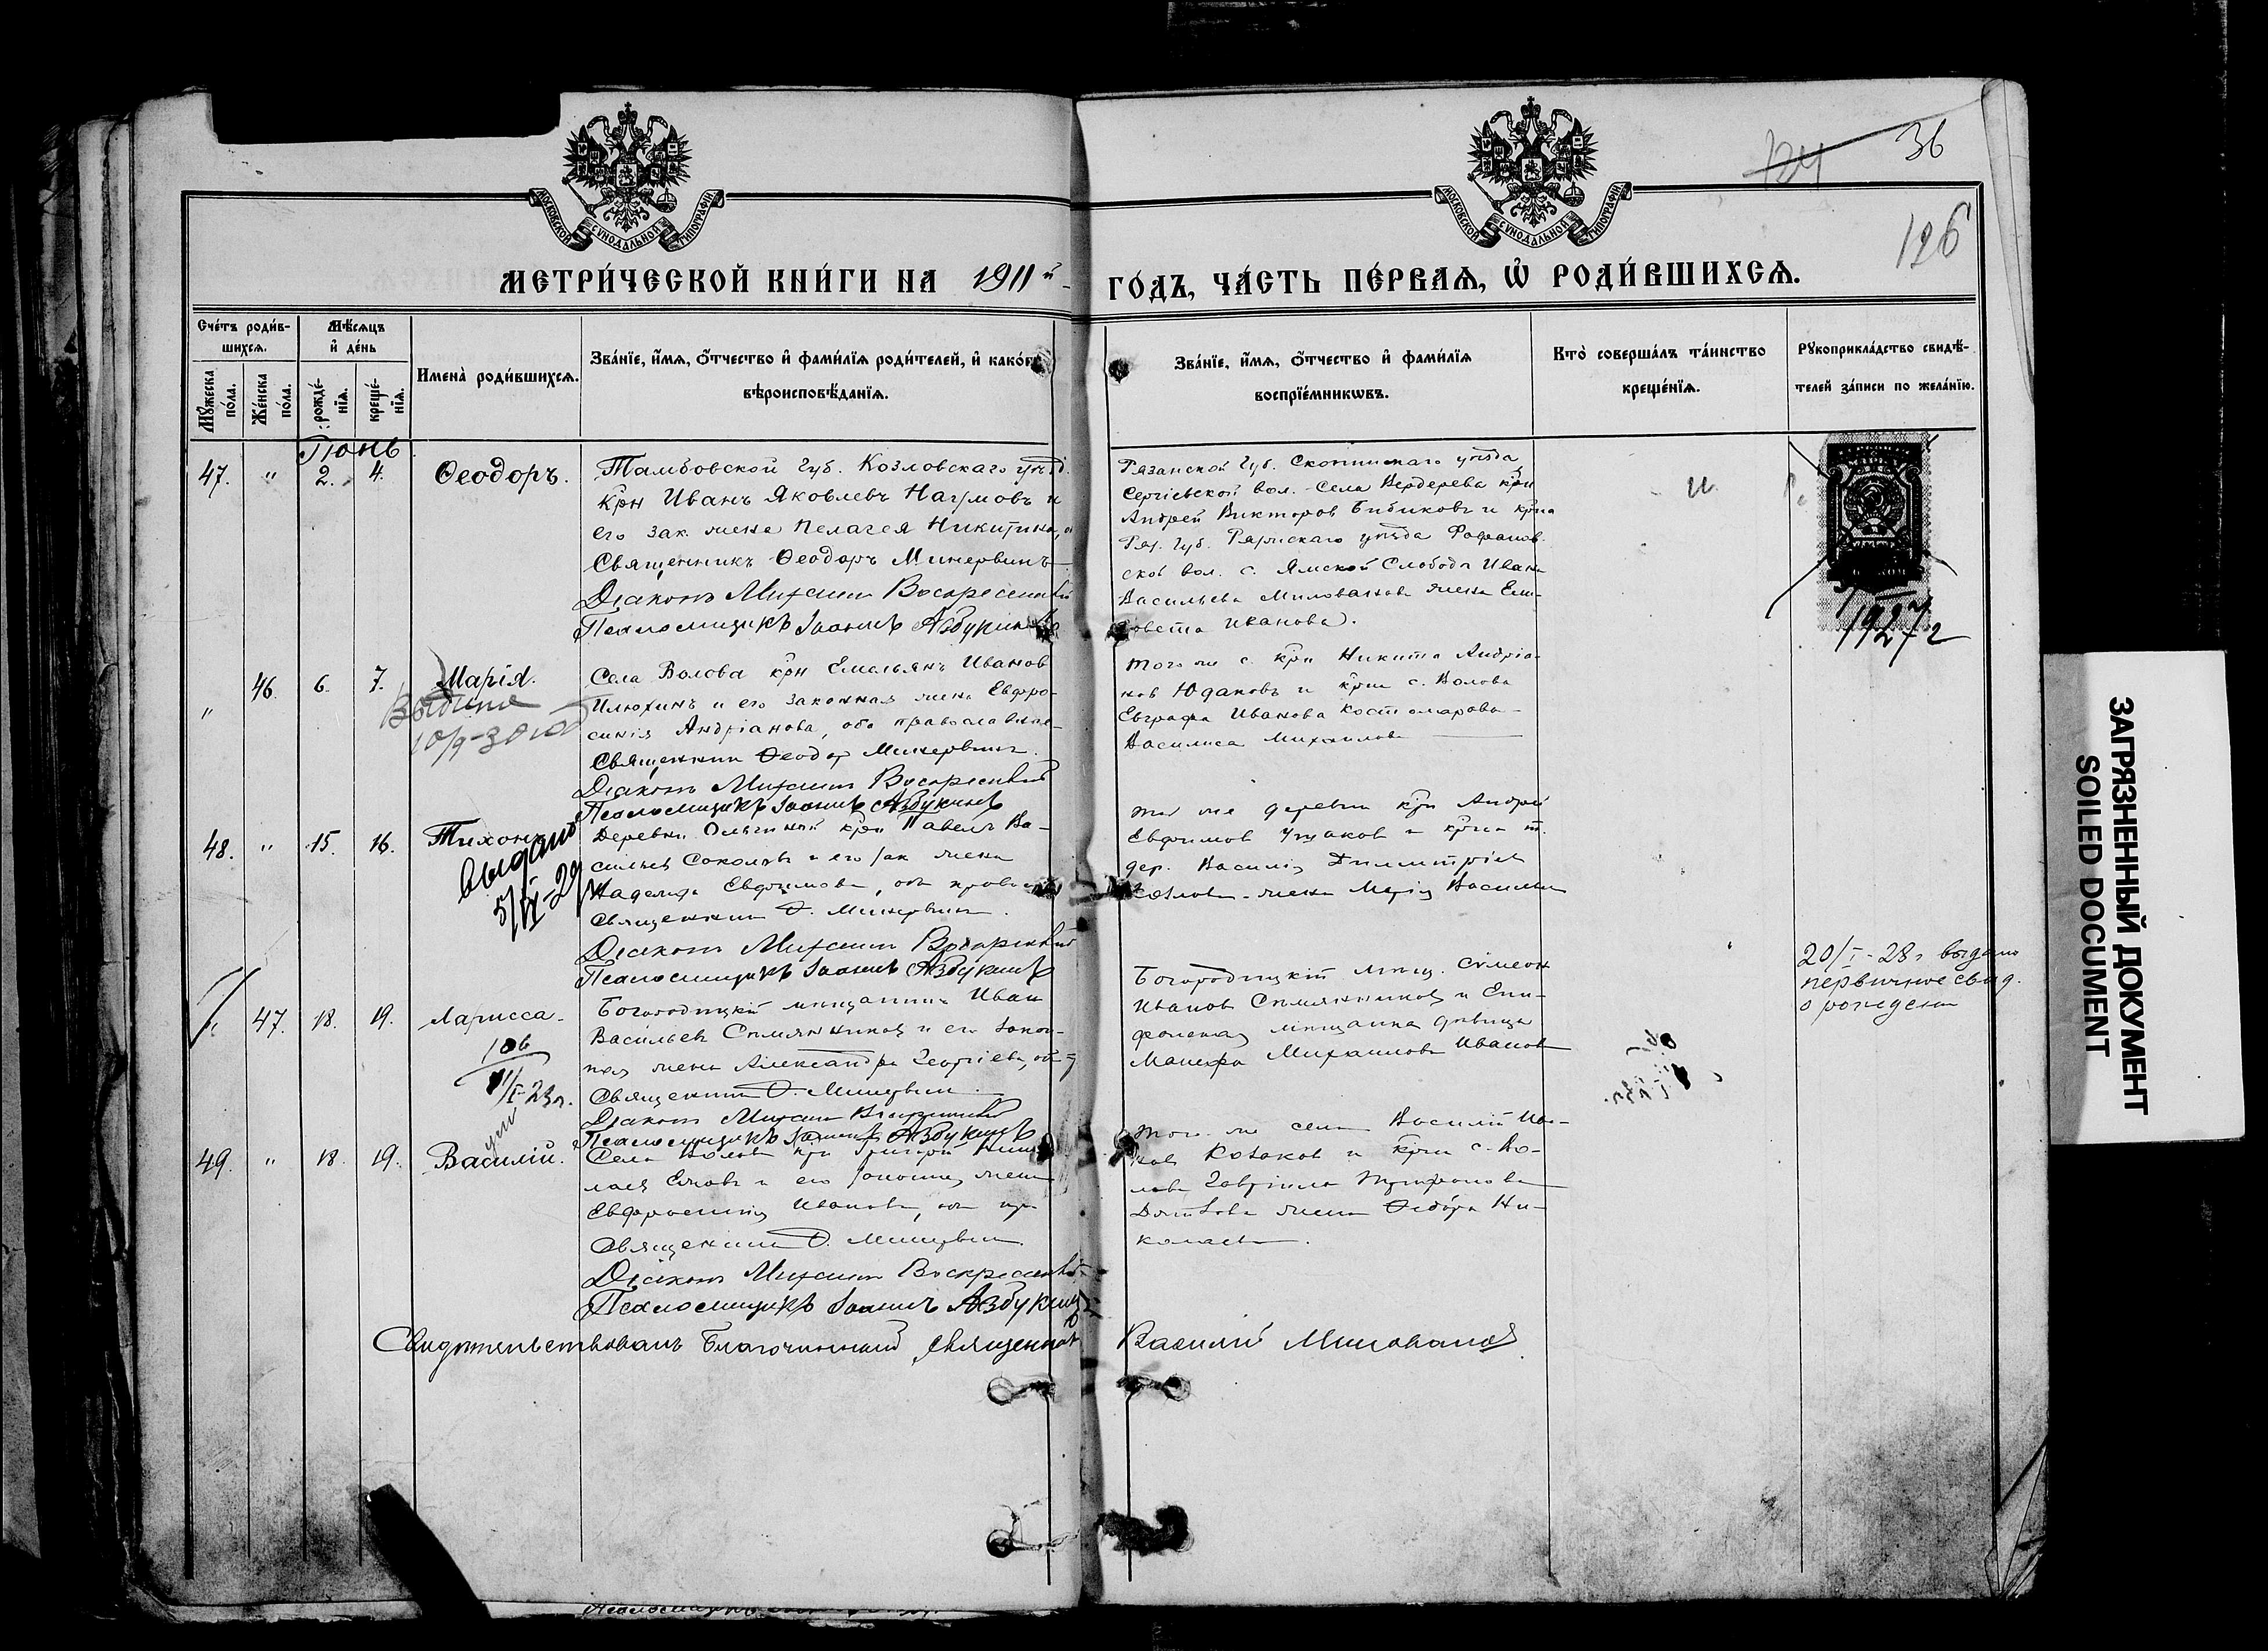 36
124
126
МОСКОВСКОЙ СѴНОДАЛЬНОЙ ТИПОГРАФІИ
МОСКОВСКОЙ СѴНОДАЛЬНОЙ ТИПОГРАФІИ
МЕТРИ́ЧЕСКОЙ КНИ́ГИ НА 1911й ГО́ДЪ, ЧА́СТЬ ПЕ́РВАѦ, Ѿ РОДИ́ВШИХСѦ.
Сче́тъ роди́в-
шихсѧ.
Мѣ́сѧцъ
и҆ де́нь
Мꙋ́жеска по́ла.
Же́нска по́ла.
рожде́-нїѧ.
креще́-нїѧ.
Имена̀ роди́вшихсѧ.
Зва́нїе, и҆́мѧ, ѻ҆́тчество и҆ фами́лїѧ роди́телей, и҆ како́гѡ
вѣроисповѣ́данїѧ.
Зва́нїе, и҆́мѧ, ѻ҆́тчество и҆ фами́лїѧ
воспрїе́мникѡвъ.
Кто̀ соверша́лъ та́инство
креще́нїѧ.
Рꙋкоприкла́дство свидѣ́-
телей за́писи по жела́нїю.
Іюнь
47. " 2. 4. Ѳеодоръ.
Тамбовской губ. Козловскаго уѣзд.
крн Иванъ Яковлевъ Нагумовъ и
его зак. жена Пелагея Никитина,
Священникъ Ѳеодоръ Минервинъ
Діаконъ Михаилъ Воскресенскій
Псаломщикъ Іоаннъ Азбукинъ
Рязанской Губ. Скопинскаго уѣзда
Сергіевской вол. Села Вердерева крн
Андрей Викторов Бибиковъ и крна
Ряз. Губ. Ряжскаго уѣзда Фофанов-
ской вол. с. Ямской Слободы Ивана
Васильева Милованова жена Ели-
совета Иванова.
1927 г
" 46. 6. 7. Марія.
Выдано
10/9-30
Села Волова крн Емельянъ Иванов
Илюхинъ и его законная жена Евфро-
синія Андріанова, оба православные
Священник Ѳеодор Минервинъ.
Діаконъ Михаилъ Воскресенскій
Псаломщикъ Іоаннъ Азбукинъ
того же с. крн Никита Андріа-
нов Юдаковъ и крна с. Волова
Евграфа Иванова Костомарова
Василиса Михаилова
48. " 15. 16. Тихон
выдано
5/IX-29
Деревни Ольгиной крн Павелъ Ва-
сильев Соколовъ и его зак жена
Надежда Евфимова, оба правос
Священник Ѳ. Минервинъ.
Діаконъ Михаилъ Воскресенскій
Псаломщикъ Іоаннъ Азбукинъ
той же деревни крн Андрей
Евфимов Ушаков и крна т.
дер. Василія Димитріев
Козлова жена Марія Васильев
" 47. 18. 19. Ларисса.
106
11/I-23г.
Богородицкій мѣщанинъ Иван
Васильев Смлянников и его закон-
ная жена Александра Георгіева,
Священник Ѳ. Минервин
Діаконъ Михаилъ Воскресенскій
Псаломщикъ Іоаннъ Азбукинъ
Богородицкій мѣщ. Симеон
Иванов Смлянников и Епи-
фанская мѣщанка дѣвица
Манефа Михаилова Иванов
20/I-28г выдано
первичное свид.
о рождении
49. " 18. 19. Василій.
Села Волова крн Григорій Нико-
лаев Ежовъ и его законная жена
Евфросинія Иванова, оба пра
Священник Ѳ. Минервин.
Діаконъ Михаилъ Воскресенскій
Псаломщикъ Іоаннъ Азбукинъ
того же села Василій Ива-
нов Козаков и крна с. Во-
лова Гавріила Трифонова
жена Ѳедора Ни-
колаева.
Свидѣтельствовалъ Благочинный, Священникъ Василій Миловановъ
ЗАГРЯЗНЕННЫЙ ДОКУМЕНТ
SOILED DOCUMENT